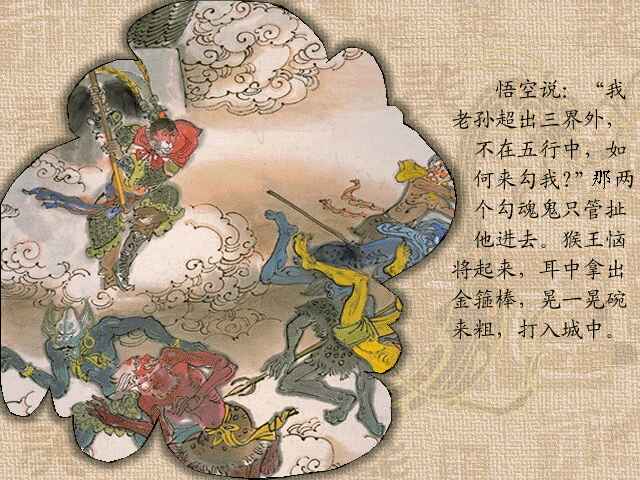 悟空说：“我
老孙超出三界外，
不在五行中，如
何来勾我?”那两
个勾魂鬼只管扯
他进去。猴王恼
将起来，耳中拿出
金箍棒，晃一晃碗
来粗，打入城中。